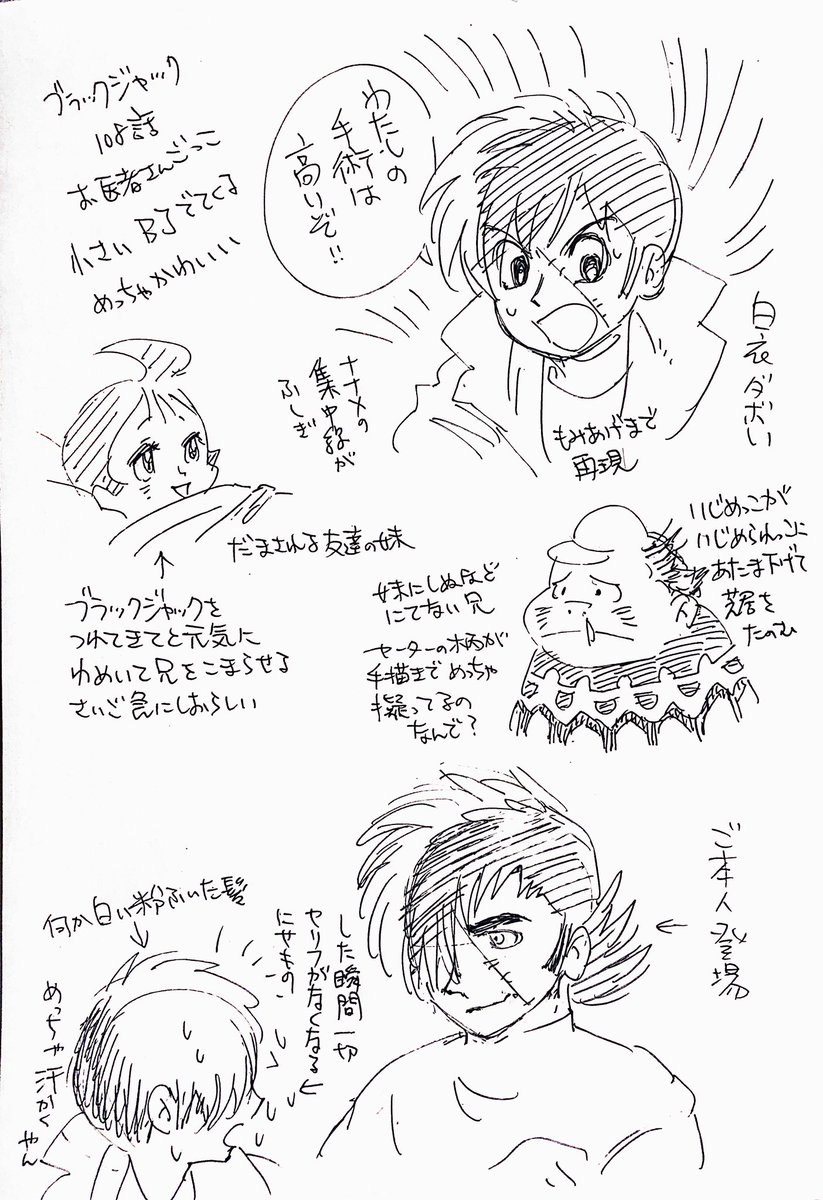 ブラックジャック
108話
お医者さんごっこ
小さいBJでてくる
めっちゃかわいい
わたしの
手術は
高いぞ!!
白衣ダボい
もみあげまで
再現
ナナメの
集中線が
ふしぎ
だまされる友達の妹
ブラックジャックを
つれてきてと元気に
わめいて兄をこまらせる
さいご急にしおらしい
いじめっこが
いじめられっこに
あたま下げて
芝居を
たのむ
妹にしぬほど
にてない兄
セーターの柄が
手描きでめっちゃ
擬ってるの
なんで?
ご本人登場
した瞬間一切
セリフがなくなる
にせもの
何か白い粉ふいた髪
めっちゃ汗かく
やん